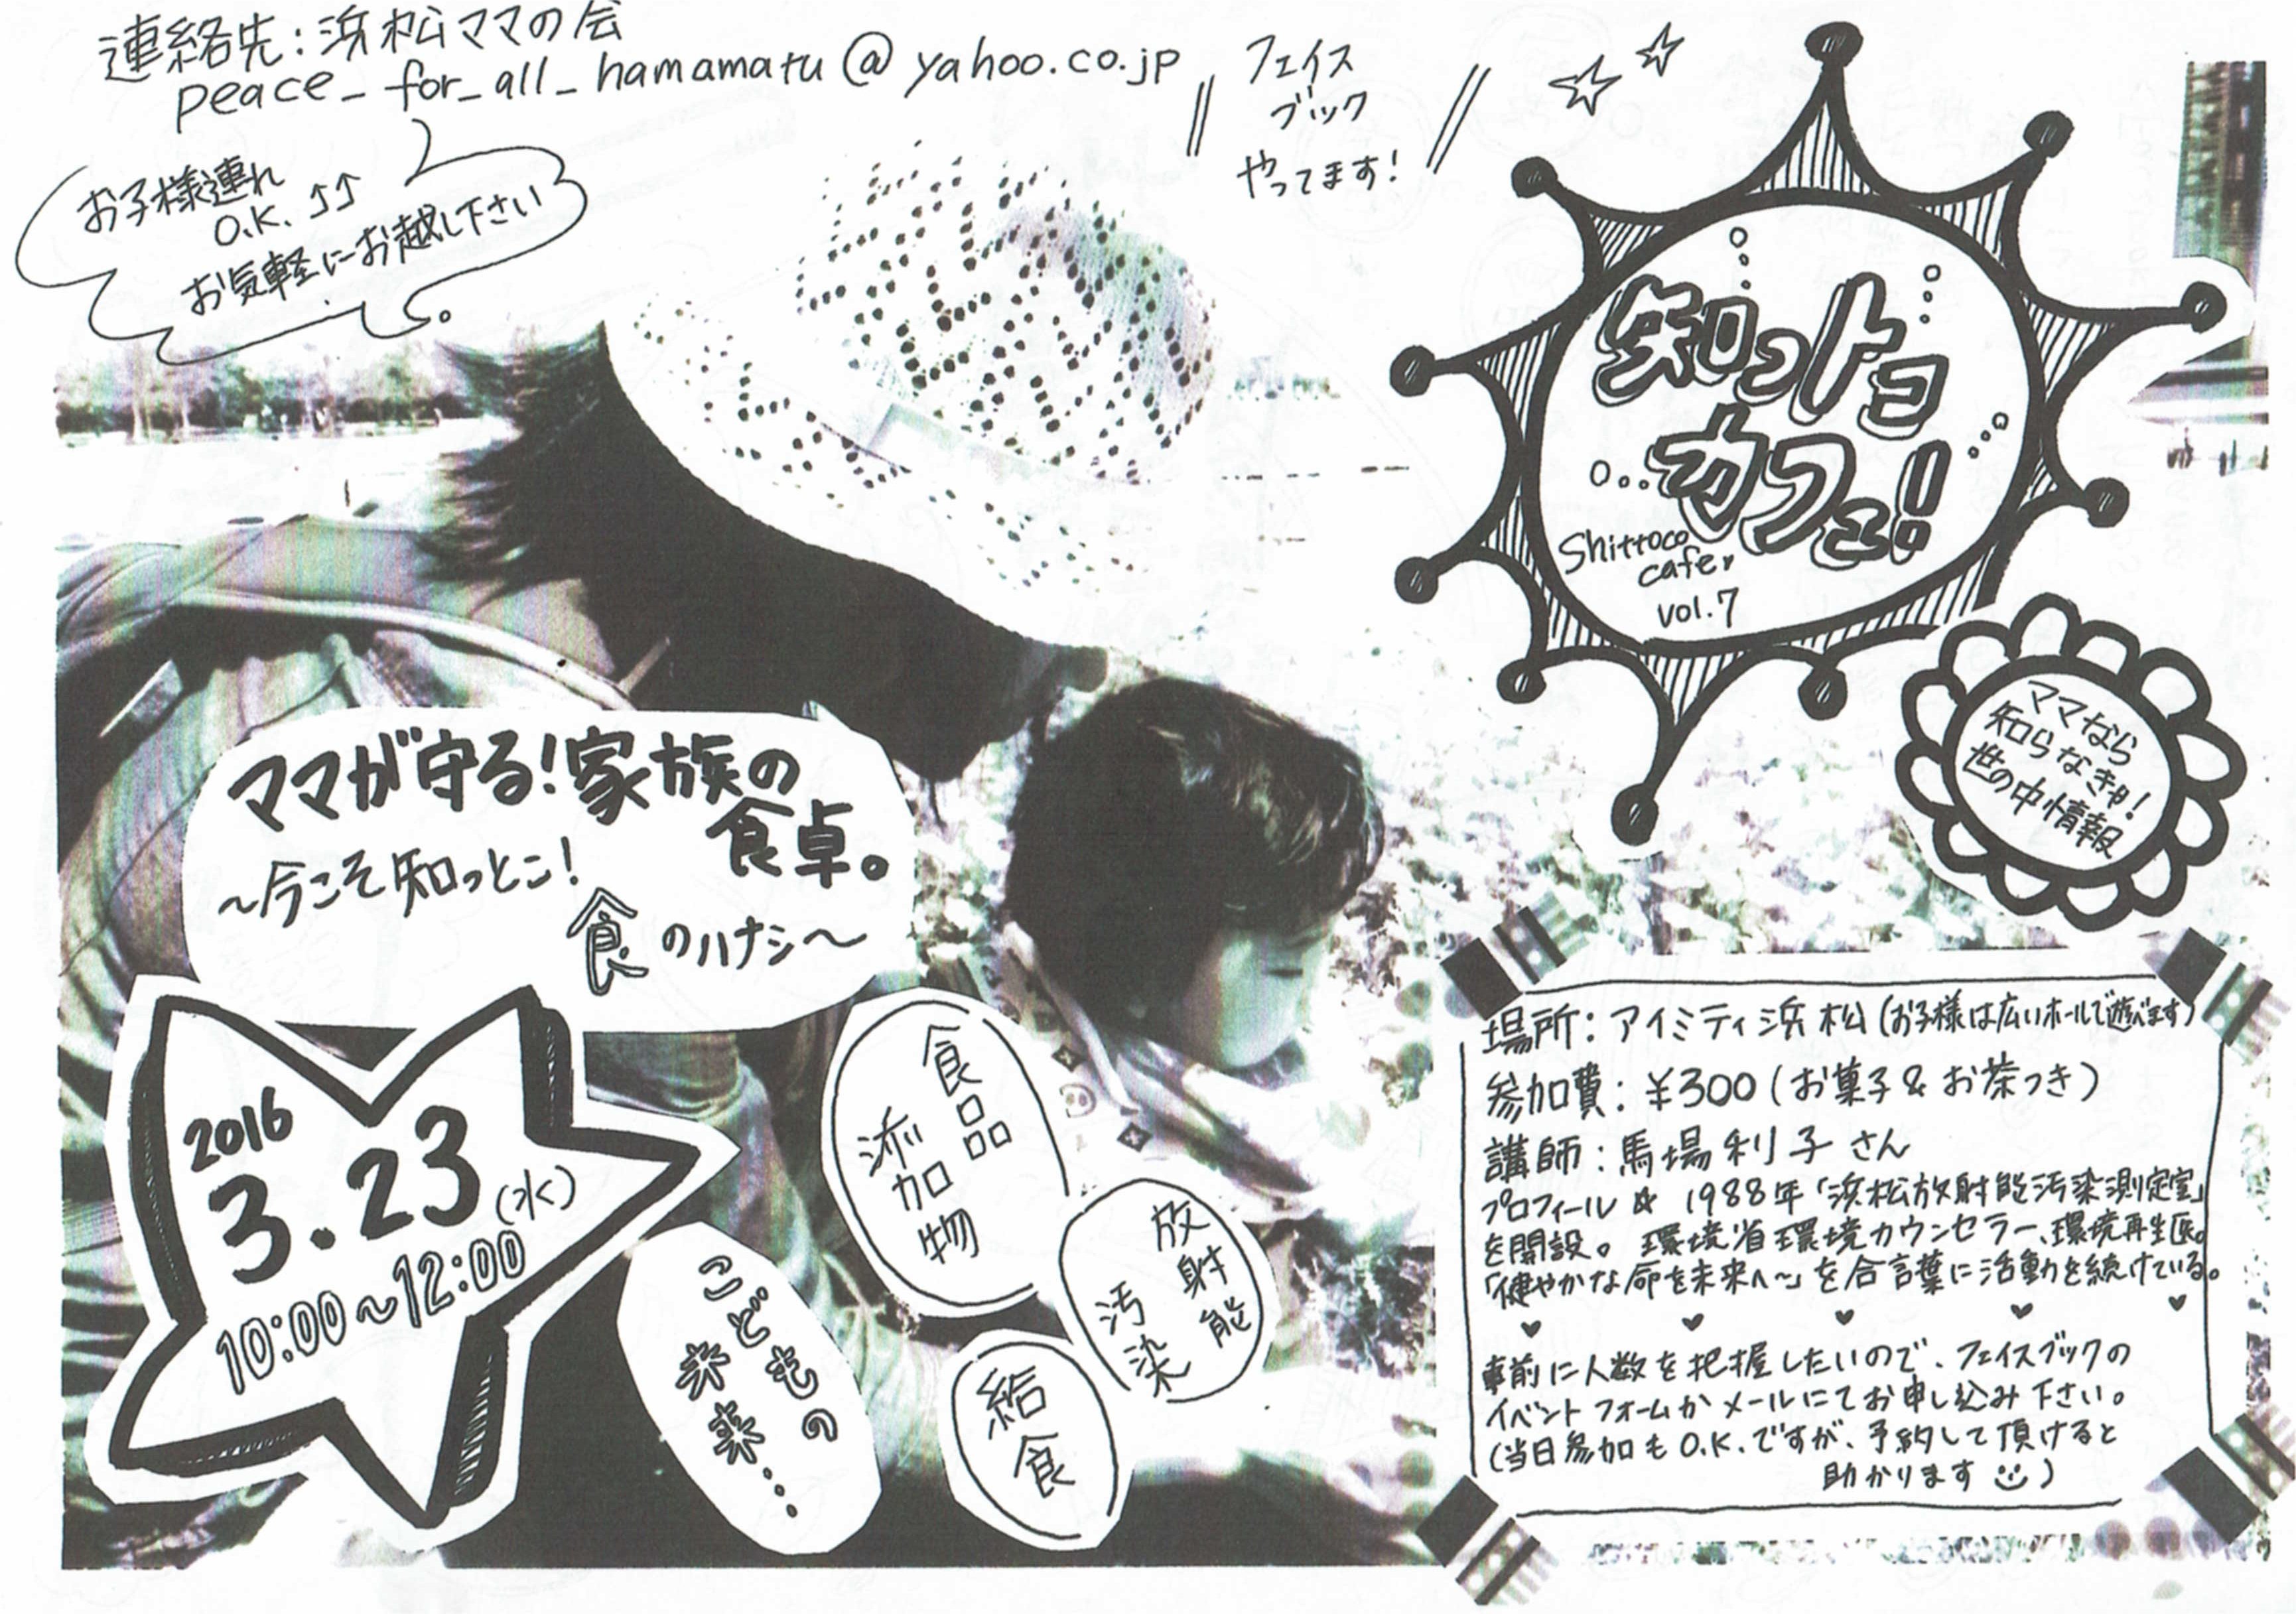 連絡先：浜松ママの会
peace_for_all_hamamatu@yahoo.co.jp
フェイス
ブック
やってます！
お子様連れ
O.K. ↑↑
お気軽にお越し下さい。
知っトコ
カフェ!!
Shittoco
cafe♥
vol.7
ママなら
知らなきゃ！
世の中情報
ママが守る！家族の
食卓。
〜今こそ知っとこ！
食のハナシ〜
2016
3.23(水)
10:00〜12:00
食品
添加物
放射能
汚染
こどもの
未来...
給食
場所：アイミティ浜松(お子様は広いホールで遊べます)
参加費：¥300（お菓子&お茶つき）
講師：馬場利子さん
プロフィール☆ 1988年「浜松放射能汚染測定室」
を開設。環境省環境カウンセラー、環境再生医。
「健やかな命を未来へ〜」を合言葉に活動を続けている。
事前に人数を把握したいので、フェイスブックの
イベントフォームかメールにてお申し込み下さい。
(当日参加もO.K.ですが、予約して頂けると
助かります☺)